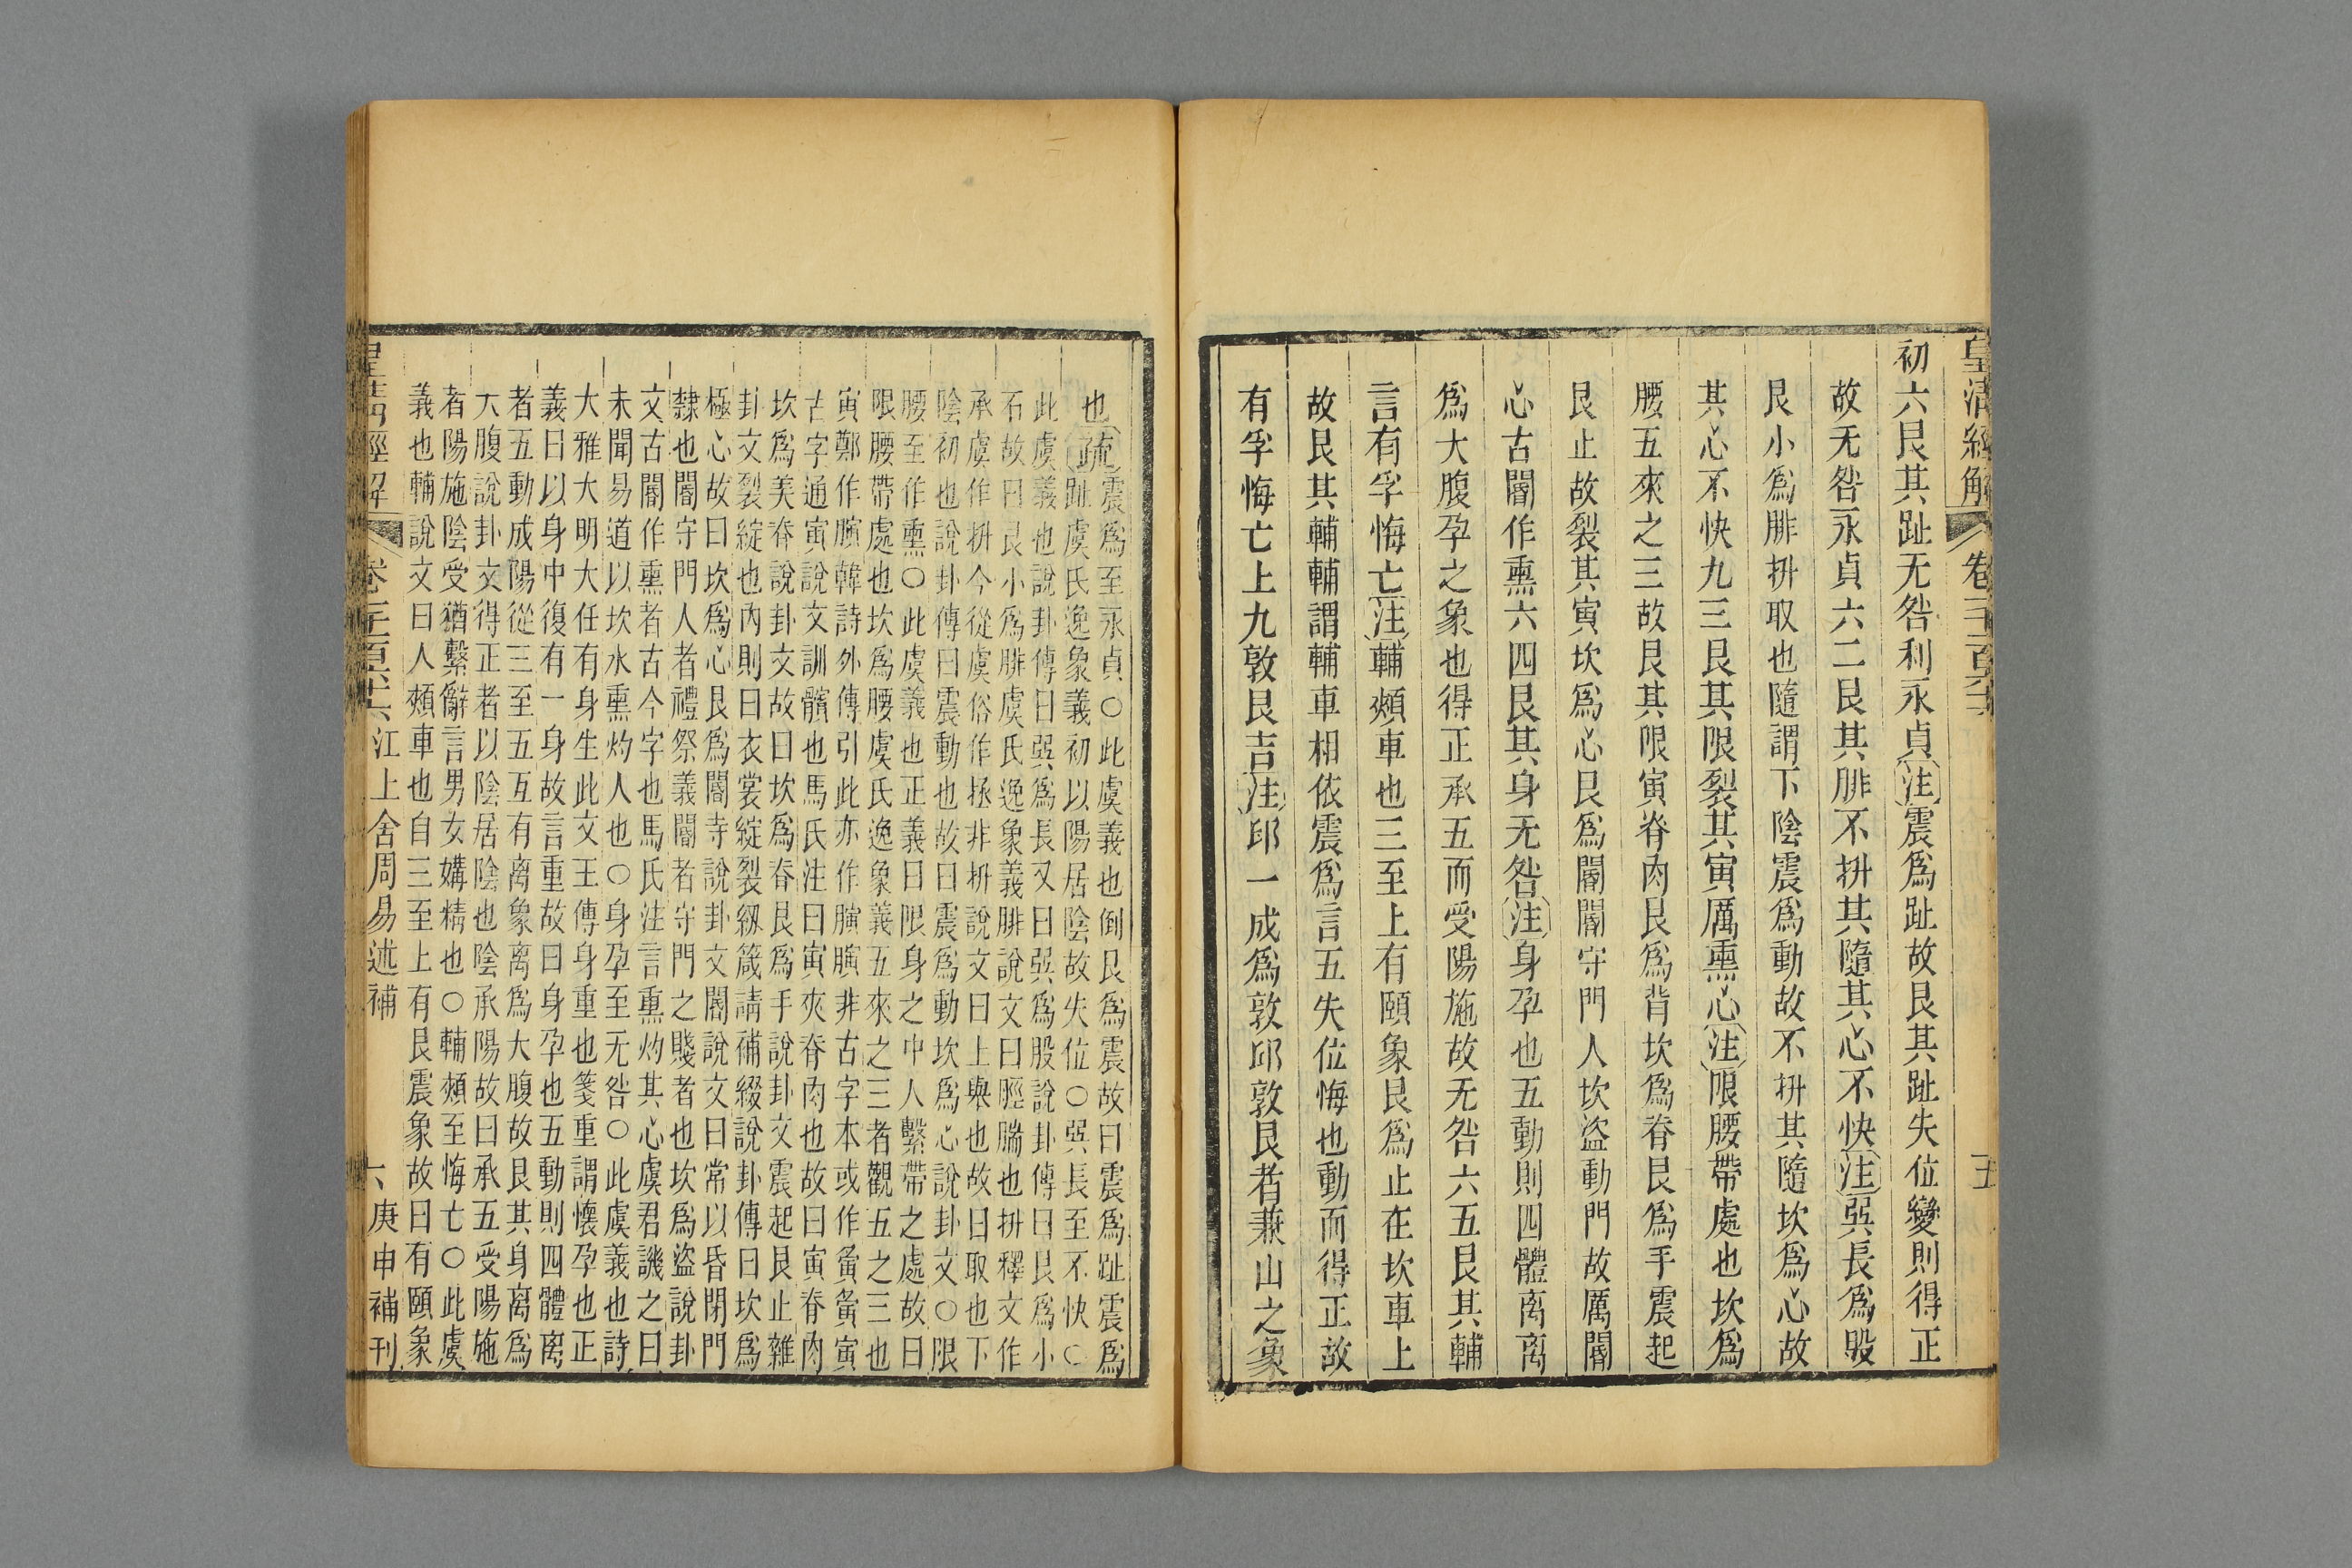 皇清經解
卷三百
五
初六艮其趾无咎利永貞注震爲趾故艮其趾失位變則得正
故无咎永貞六二艮其腓不拼其隨其心不快注巽長爲股
艮小爲腓拼取也隨謂下陰震爲動故不拼其隨坎爲心故
其心不快九三艮其限裂其寅厲熏心注限腰帶處也坎爲
腰五來之三故艮其限寅脊肉艮爲背坎爲脊艮爲手震起
艮止故裂其寅坎爲心艮爲閽閽守門人坎盜動門故厲閽
心古閽作熏六四艮其身无咎注身孕也五動則四體离离
爲大腹孕之象也得正承五而受陽施故无咎六五艮其輔
言有孚悔亡注輔頰車也三至上有頤象艮爲止在坎車上
故艮其輔輔謂輔車相依震爲言五失位悔也動而得正故
有孚悔亡上九敦艮吉注邱一成爲敦邱敦艮者兼山之象
也疏震爲至永貞○此虞義也倒艮爲震故曰震爲趾震爲
趾虞氏逸象義初以陽居陰故失位○巽長至不快○
此虞義也說卦傳曰巽爲長又曰巽爲股說卦傳曰艮爲小
石故曰艮小爲腓虞氏逸象義腓說文曰脛腨也拼釋文作
承虞作拼今從虞俗作拯非拼說文曰上舉也故曰取也下
陰初也說卦傳曰震動也故曰震爲動坎爲心說卦文○限
腰至作熏○此虞義也正義曰限身之中人繫帶之處故曰
限腰帶處也坎爲腰虞氏逸象義五來之三者觀五之三也
寅鄭作䐄韓詩外傳引此亦作䐄䐄非古字本或作夤夤寅
古字通寅說文訓髕也馬氏注曰寅夾脊肉也故曰寅脊肉
坎爲美脊說卦文故曰坎爲脊艮爲手說卦文震起艮止雜
卦文裂綻也內則曰衣裳綻裂紉箴請補綴說卦傳曰坎爲
極心故曰坎爲心艮爲閽寺說卦文閽說文曰常以昏閉門
隸也閽守門人者禮祭義閽者守門之賤者也坎爲盜說卦
文古閽作熏者古今字也馬氏注言熏灼其心虞君譏之曰
未聞易道以坎水熏灼人也○身孕至无咎○此虞義也詩
大雅大明大任有身生此文王傳身重也箋重謂懷孕也正
義曰以身中復有一身故言重故曰身孕也五動則四體离
者五動成陽從三至五互有离象离爲大腹故艮其身离爲
大腹說卦文得正者以陰居陰也陰承陽故曰承五受陽施
者陽施陰受猶繫辭言男女媾精也○輔頰至悔亡○此虞
義也輔說文曰人頰車也自三至上有艮震象故曰有頤象
皇清經解
江上舍周易述補
六
庚申補刊